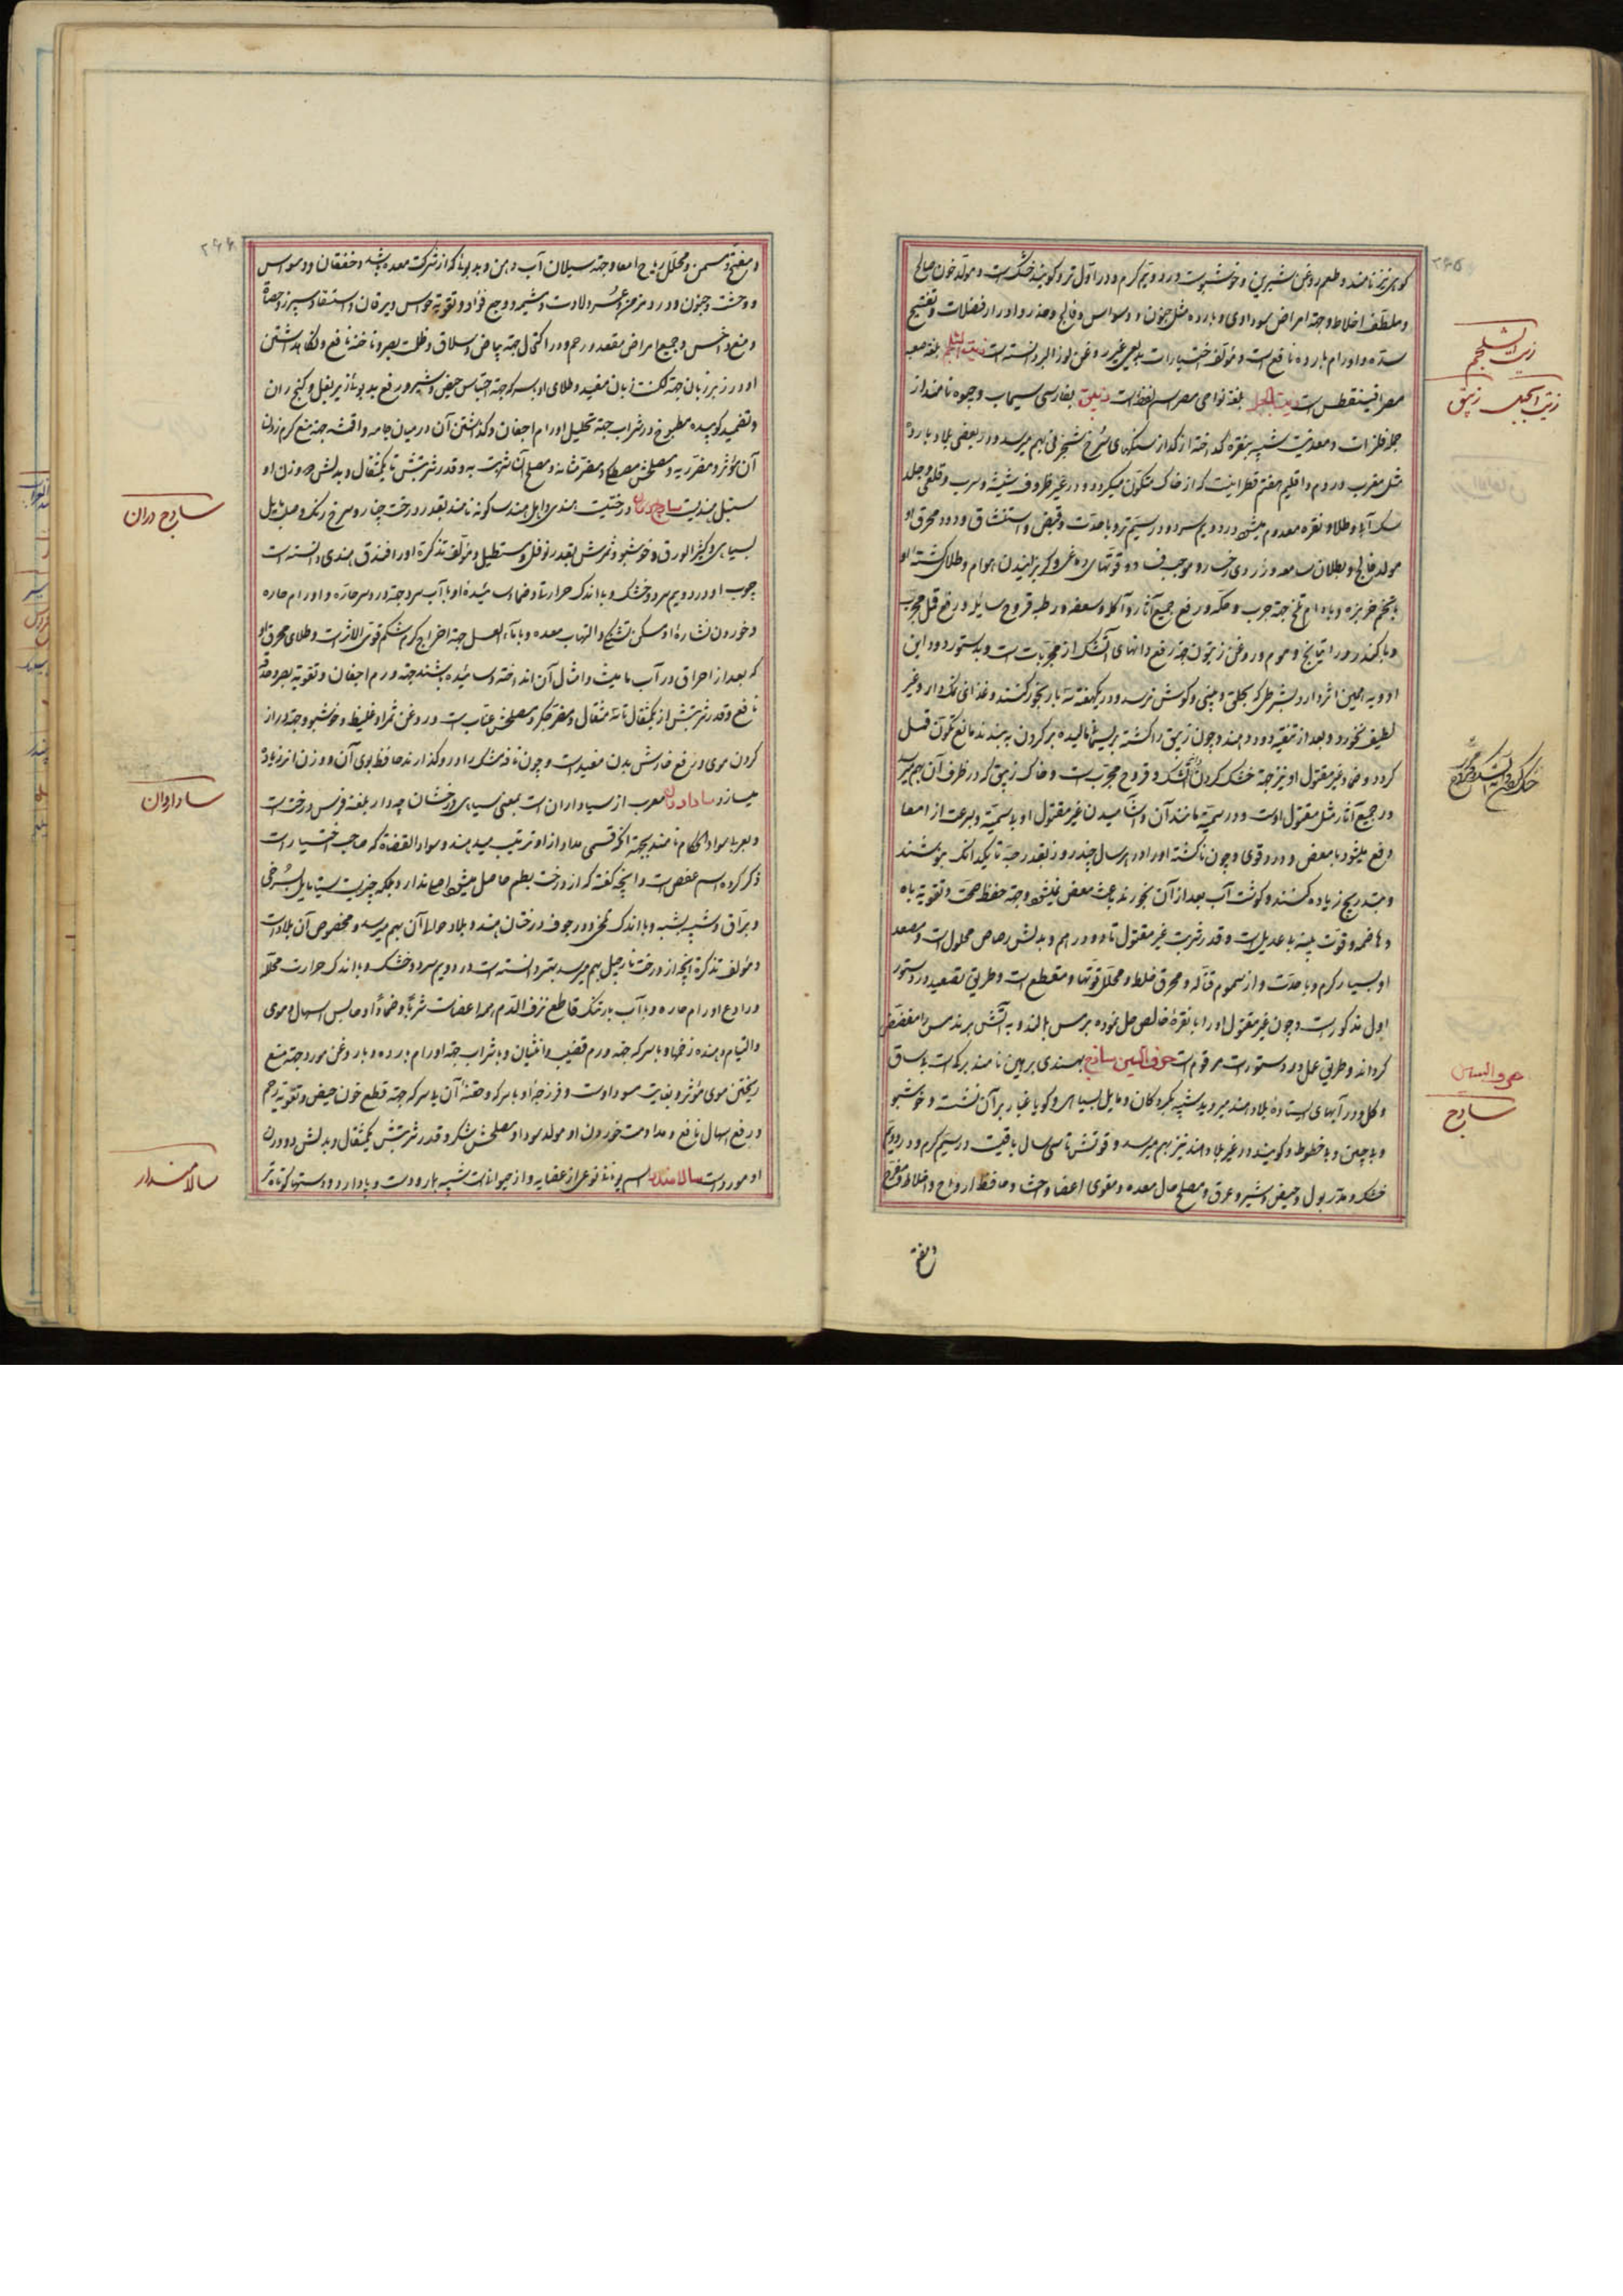 ۲۶۵
کوهی نیز نامند و طعم روغن شیرین و خوشبوست در دویم گرم و در اول تر و گویند خشک است و مولد خون صالح
و ملطف اخلاط و جهة امراض سوداوی و بارده مثل جنون و وسواس و فالج و خدر و ادرار فضلات و تفتیح
سده و اورام بارده نافع است و مؤلف اختیارات بدیعی غیر روغن لوز البر دانسته است زیت الشلجم بلغة صعید
مصر اقینقطس است زیت الجبل بلغة نواحی مصر اسم نفط است زیبق بفارسی سیماب و جیوه نامند از
جمله فلزات و معدنیست شبیه بنقره گداخته از گداز سنگهای سرخ شنجرفی بهم میرسد و در بعضی بلاد بارده
مثل مغرب و روم و اقلیم هفتم قطراتیست که از خاک متکون میگردد و در غیر ظروف شیشه و سرب و قلعی و جلد
سک آبی و طلا و نقره معدوم میشود در دویم سرد و در سیم تر و با حدت و قبض و استنشاق دود محرق او
مولد فالج و بطلان سامعه و زردی رخسار و موجب ضعف قوتهای دماغی و گریزانیدن هوام و طلای کشته او
با تخم خربزه و بادام تلخ جهة جرب و حکه و رفع جمیع آثار و آکله و سعفه رطبه و قروح سایله و رفع قمل مجرب
و با کندر و راتیانج و موم و روغن زیتون جهة رفع دانهای آتشک از مجربات است و بدستور دود این
ادویه همین اثر دارد بشرطی که بحلق و بینی و گوش نرسد و در یکهفته سه بار بخور کنند و غذای نمکدار و غیر
لطیف نخورد و بعد از تنقیه دود دهند و چون زیبق را کشته بر ریسمان مالیده بر گردن به بندند مانع تکون قمل
گردد و ضماد غیر مقتول او نیز جهة خشک کردن آتشک و قروح مجرب است و خاک زیبق که در ظرف آن بهم میرسد
در جمیع آثار مثل مقتول اوست و در سمیة مانند آن و آشامیدن غیر مقتول او بلا سمیة و بسرعت از امعا
دفع میشود با مغص و درد قوی و چون ناکشته او را در ارسال چند روز بقدر حبه تا یکدانک بنوشند
و بتدریج زیاده کنند و گوشت آب بعد از آن بخورند باعث مغص نمیشود و جهة حفظ صحت و تقویه باه
و هاضمه و قوت بنیه بیعدیل است و قدر شربت غیر مقتول تا دو درهم و بدلش رصاص محلول است و مصعد
او بسیار گرم و با حدت و از سموم قتاله و محرق خلط و محلل قوتها و مقطع است و طریق تصعید در دستور
اول مذکور است و چون غیر مقتول او را با نقرهٔ خالص حل نموده بر مس بمالند و به آتش برند مس را مفضض
گرداند و طریق عمل در دستورات مرقوم است حرف السین ساذج بهندی برهین نامند برگ است بیساق
و گل و در آبهای ایستادهٔ بلاد هند میروید شبیه ببرگ گردکان و مایل بسیاهی و گویا غبار بر آن نشسته و خوشبو
و با چین و با خطوط و گویند در غیر بلاد هند نیز بهم میرسد و قوتش تا سی سال باقیست در سیم گرم و در دویم
خشک و مدر بول و حیض و شیر و عرق و مصلح حال معده و مقوی اعضا و احشا و حافظ ارواح و اخلاط و مفرح
و مفتح
زیت الشلجم
زیت الجبل زیبق
حرف السین
ساذج
۲۶۶
و مفتح و مسمن و محلل ریاح امعا و جهة سیلان آب دهن و بد بوئی که از شرکت معده باشد و خفقان و وسواس
و وحشت و جنون و درد مزمن و عسر ولادت و مشیمه و وجع فؤاد و تقویه حواس و یرقان و استسقا و سپرز و حصاة
و منع داخس و جمیع امراض مقعد و رحم و در اکتحال جهة بیاض و سلاق و ظلمت بصر و ناخنه نافع و نگاهداشتن
او در زیر زبان جهة لکنت زبان مفید و طلای او با سرکه جهة احتباس حیض و شیر و رفع بدبوئی زیر بغل و کنج ران
و تضمید کوبیده مطبوخ در شراب جهة تحلیل اورام اجفان و گذاشتن آن در میان جامه و اقمشه جهة منع کرم زدن
آن مؤثر و مضر ریه و مصلحش مصطکی و مضر مثانه و مصلح آن شربت به و قدر شربتش تا یکمثقال و بدلش دو وزن او
سنبل هندیست ساذج دران درختیست هندی و اهل هند ساگونه نامند بقدر درخت چنار و سرخ رنگ و صلب مایل
بسیاهی و کثیر الورق و خوشبو و ثمرش بقدر فوفل و مستطیل و مؤلف تذکرة او را فندق هندی دانسته است
چوب او در دویم سرد و خشک و با اندک حرارت و ضماد سائیدهٔ او با آب سرد جهة درد سر حاره و اورام حاره
و خوردن نشارهٔ او مسکن تشنگی و التهاب معده و با ماء العسل جهة اخراج کرم شکم قوی الاثر است و طلای محرق او
که بعد از احراق در آب مامیثا و امثال آن انداخته و سائیده باشند جهة ورم اجفان و تقویه بصر و حدقه
نافع و قدر شربتش از یکمثقال تا سه مثقال و مضر جگر و مصلحش عناب است و روغن ثمر او غلیظ و خوشبو و جهة دراز
کردن موی و رفع خارش بدن مفید است و چون نافه مشک را در او گذارند حافظ بوی آن و وزن انرا زیاد
میسازد ساداوران معرب از سیاداران است بمعنی سیاهی درختان چه دار بلغة فرس درخت است
و بعربی سواد الحکام نامند بجهة آنکه قسمی مداد از او ترتیب میدهند و سواد القضاة که صاحب اختیارات
ذکر کرده اسم عفص است و انچه گفته که از درخت بطم حاصل میشود اصلی ندارد بلکه چیزیست سیاه مایل بسرخی
و براق و شبیه بشبه و با اندک تلخی و در جوف درختان هند و بلاد حوالی آن بهم میرسد و مخصوص آن بلاد است
و مؤلف تذکرة انچه از درخت نارجیل بهم میرسد بهتر دانسته است در دویم سرد و خشک و با اندک حرارت محلله
و رادع اورام حاره و با آب بارتنگ قاطع نزف الدم همه اعضاست شرباً و ضماداً و حابس اسهال دموی
و التیام دهنده زخمها و با سرکه جهة ورم قضیب و انثیان و با شراب جهة اورام بارده و با روغن مورد جهة منع
ریختن موی مؤثر و بغایت مسود اوست و فرزجهٔ او با سرکه و حقنهٔ آن با سرکه جهة قطع خون حیض و تقویه رحم
و رفع اسهال نافع و مداومت خوردن او مولد سودا و مصلحش شکر و قدر شربتش یکمثقال و بدلش دو وزن
او مورد است سالامندرا اسم یونانی نوعی از عضایه و از حیوانات شبیه بمارو دست و پا دارد و دستها کوتاه تر
ساذج دران
ساداوران
سالامندرا